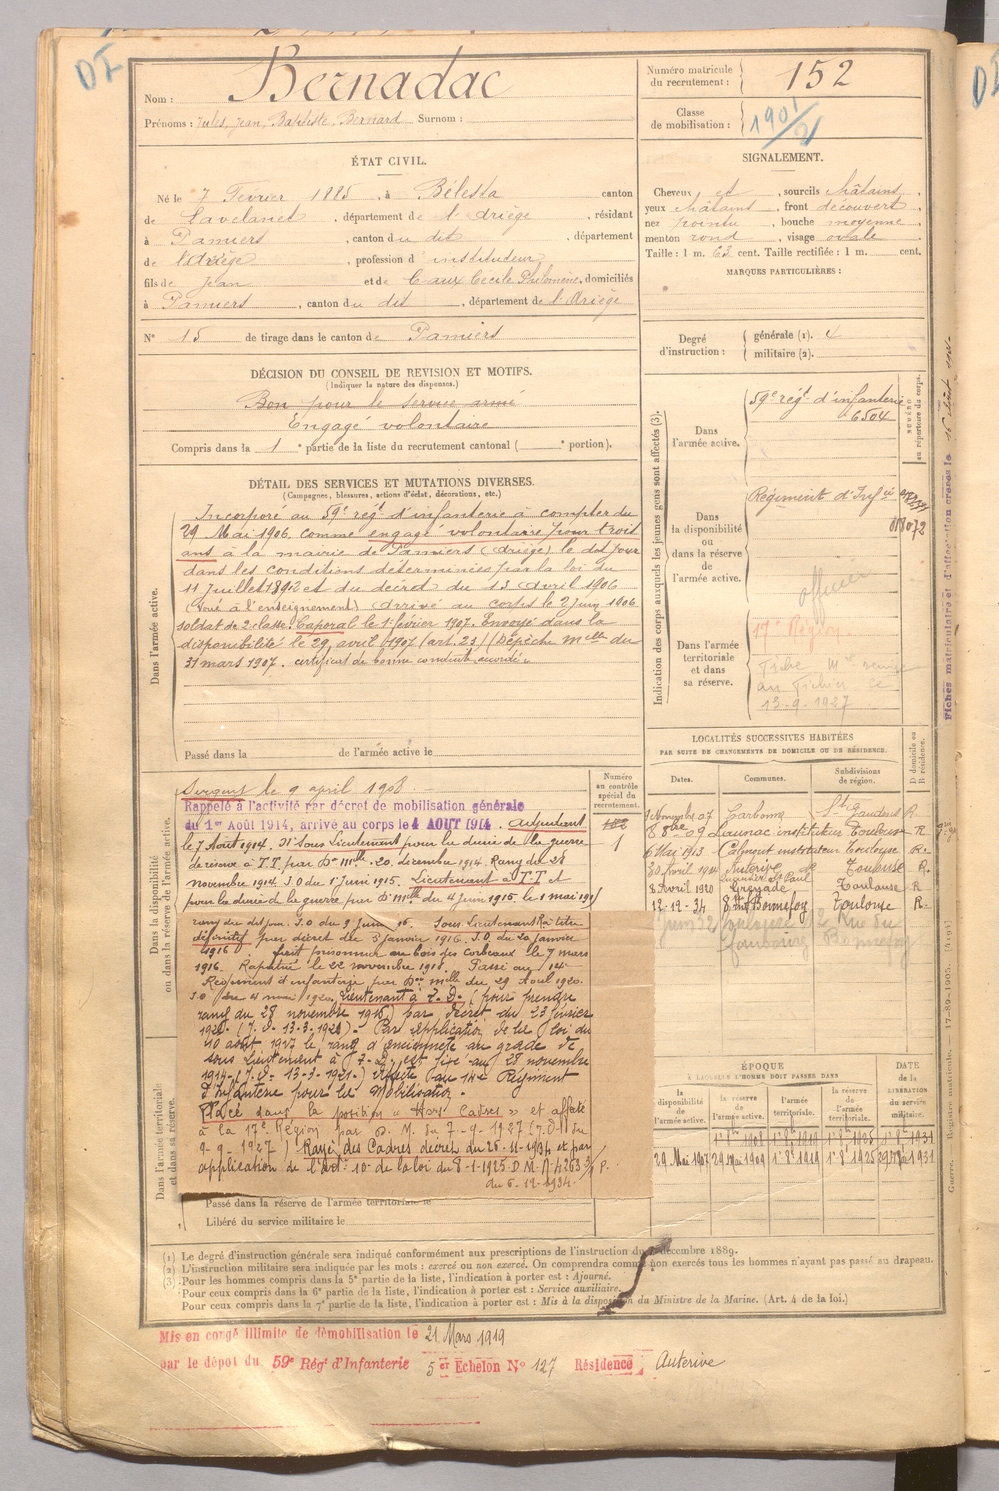 DI
Nom : Bernadac
Prénoms : Jules, Jean, Baptiste, Bernard Surnom :
Numéro matricule du recrutement : 152
Classe de mobilisation : 1901/2
ÉTAT CIVIL.
Né le 7 Fevrier 1885, à Bélesta canton
de Lavelanet, département de l'Ariège, résidant
à Pamiers, canton du dit, département
de l'Ariège, profession d'instituteur
fils de Jean et de Caux Cecile Philomène, domiciliés
à Pamiers, canton du dit, département de l'Ariège
N° 15 de tirage dans le canton de Pamiers
SIGNALEMENT.
Cheveux et, sourcils châtains,
yeux châtains, front découvert,
nez pointu, bouche moyenne
menton rond, visage ovale
Taille : 1 m. 63 cent. Taille rectifiée : 1 m. cent.
MARQUES PARTICULIÈRES :
Degré d'instruction :
générale (1).
militaire (2).
DÉCISION DU CONSEIL DE REVISION ET MOTIFS.
(Indiquer la nature des dispenses.)
Bon pour le service armé
Engagé volontaire
Compris dans la 1e partie de la liste du recrutement cantonal ( e portion).
DÉTAIL DES SERVICES ET MUTATIONS DIVERSES.
(Campagnes, blessures, actions d'éclat, décorations, etc.)
Dans l'armée active.
Incorporé au 59e régt d'infanterie à compter du
29 Mai 1906, comme engagé volontaire pour trois
ans à la mairie de Pamiers (Ariège) le dit jour
dans les conditions déterminées par la loi du
11 juillet 1892 et du décrèt du 13 Avril 1906
(Voué à l'enseignement) arrivé au corps le 2 juin 1906
soldat de 2e classe. Caporal le 1er février 1907. envoyé dans la
disponibilité le 29 avril 1907 (art. 23) (Dépêche Mlle du
31 mars 1907. certificat de bonne conduite accordé.
Passé dans la de l'armée active le
Indication des corps auxquels les jeunes gens sont affectés (3).
NUMÉRO au répertoire du corps.
Dans l'armée active.
59e régt d'infanterie
6504
Dans la disponibilité ou dans la réserve de l'armée active.
Régiment d'Infie
018072
officier
Dans l'armée territoriale et dans sa réserve.
17e Région
Fiche Mle
au Fichier ce
13-9-1927
LOCALITÉS SUCCESSIVES HABITÉES
PAR SUITE DE CHANGEMENTS DE DOMICILE OU DE RÉSIDENCE.
Dates. Communes. Subdivisions de région. D domicile ou R résidence.
Novembre 07 Carbonne St Gaudens R
8 8bre 09 Launac instituteur Toulouse R
6 Mai 1913 Calmont instituteur Toulouse R.
Auterive Toulouse R.
8 Avril 1920 Grenade Toulouse R
12-12-34 Bonnefoy Toulouse R
Juin 32 Toulouse 2 Rue du
Faubourg Bonnefoy
Dans la disponibilité ou dans la réserve de l'armée active.
Numéro au contrôle spécial du recrutement.
1
Sergent le 9 april 1908.
Rappelé à l'activité par décret de mobilisation générale
du 1er Août 1914, arrivé au corps le 4 AOUT 1914. Adjudant
le 7 Août 1914. Sous Lieutenant pour la durée de la guerre
de réserve à T.T. par Don Mlle. 20. décembre 1914. Rang du 28
novembre 1914. J.O du 1er Juin 1915. Lieutenant à T.T et
pour la durée de la guerre, par Don Mlle du 4 Juin 1915 le 1 mai 191
rang du dit jour. J.O du 9 Juin 15. Sous Lieutenant R à titre
définitif par décret du 3 janvier 1916. J.O du 20 janvier
1916. fait prisonnier au bois des corbeaux le 7 mars
1916. Rapatrié le 22 novembre 1918. Passé au 14e
Régiment d'infanterie par Don Mlle du 29 Août 1920.
J.O du 4 mai 1920. Lieutenant à T.D. (pour prendre
rang du 28 novembre 1916) par décret du 23 février
1921. (J.O. 13-3-1921). Par application de la loi du
10 août 1917 le rang d'ancienneté au grade de
sous lieutenant à T.D. est fixé au 28 novembre
1914. (J.O. 13-3-1921.) Affecté au 14e Régiment
d'Infanterie pour la Mobilisation.
Placé dans la position "Hors Cadres" et affecté
à la 17e Région par D.M. du 7-9-1927 (J.O. du
9-9-1927) Rayé des Cadres décret du 26-11-1934 et par
application de l'Art: 10 de la loi du 8-1-1925 D.M. N° 4263 3/P.
du 6-12-1934.
Dans l'armée territoriale et dans sa réserve.
Passé dans la réserve de l'armée territoriale le
Libéré du service militaire le
ÉPOQUE
À LAQUELLE L'HOMME DOIT PASSER DANS
la disponibilité de l'armée active. la réserve de l'armée active. l'armée territoriale. la réserve de l'armée territoriale.
DATE de la LIBÉRATION du service militaire.
1er 8bre 1908 1er 8bre 1919 1er 8bre 1925 1er 8bre 1931
29 Mai 1907 29 Mai 1909 1er 8bre 1919 1er 8bre 1925 29 Mai 1931
(1) Le degré d'instruction générale sera indiqué conformément aux prescriptions de l'instruction du décembre 1889.
(2) L'instruction militaire sera indiquée par les mots : exercé ou non exercé. On comprendra comme non exercés tous les hommes n'ayant pas passé au drapeau.
(3) Pour les hommes compris dans la 5e partie de la liste, l'indication à porter est : Ajourné.
Pour ceux compris dans la 6e partie de la liste, l'indication à porter est : Service auxiliaire.
Pour ceux compris dans la 7e partie de la liste, l'indication à porter est : Mis à la disposition du Ministre de la Marine. (Art. 4 de la loi.)
Mis en congé illimité de démobilisation le 21 Mars 1919
par le dépôt du 59e Régt d'Infanterie 5er Échelon N° 127 Résidence Auterive
Guerre. Registre matricule. — 17-89-1905. [4194]
Fiches matriculaire et d'affectation créées le